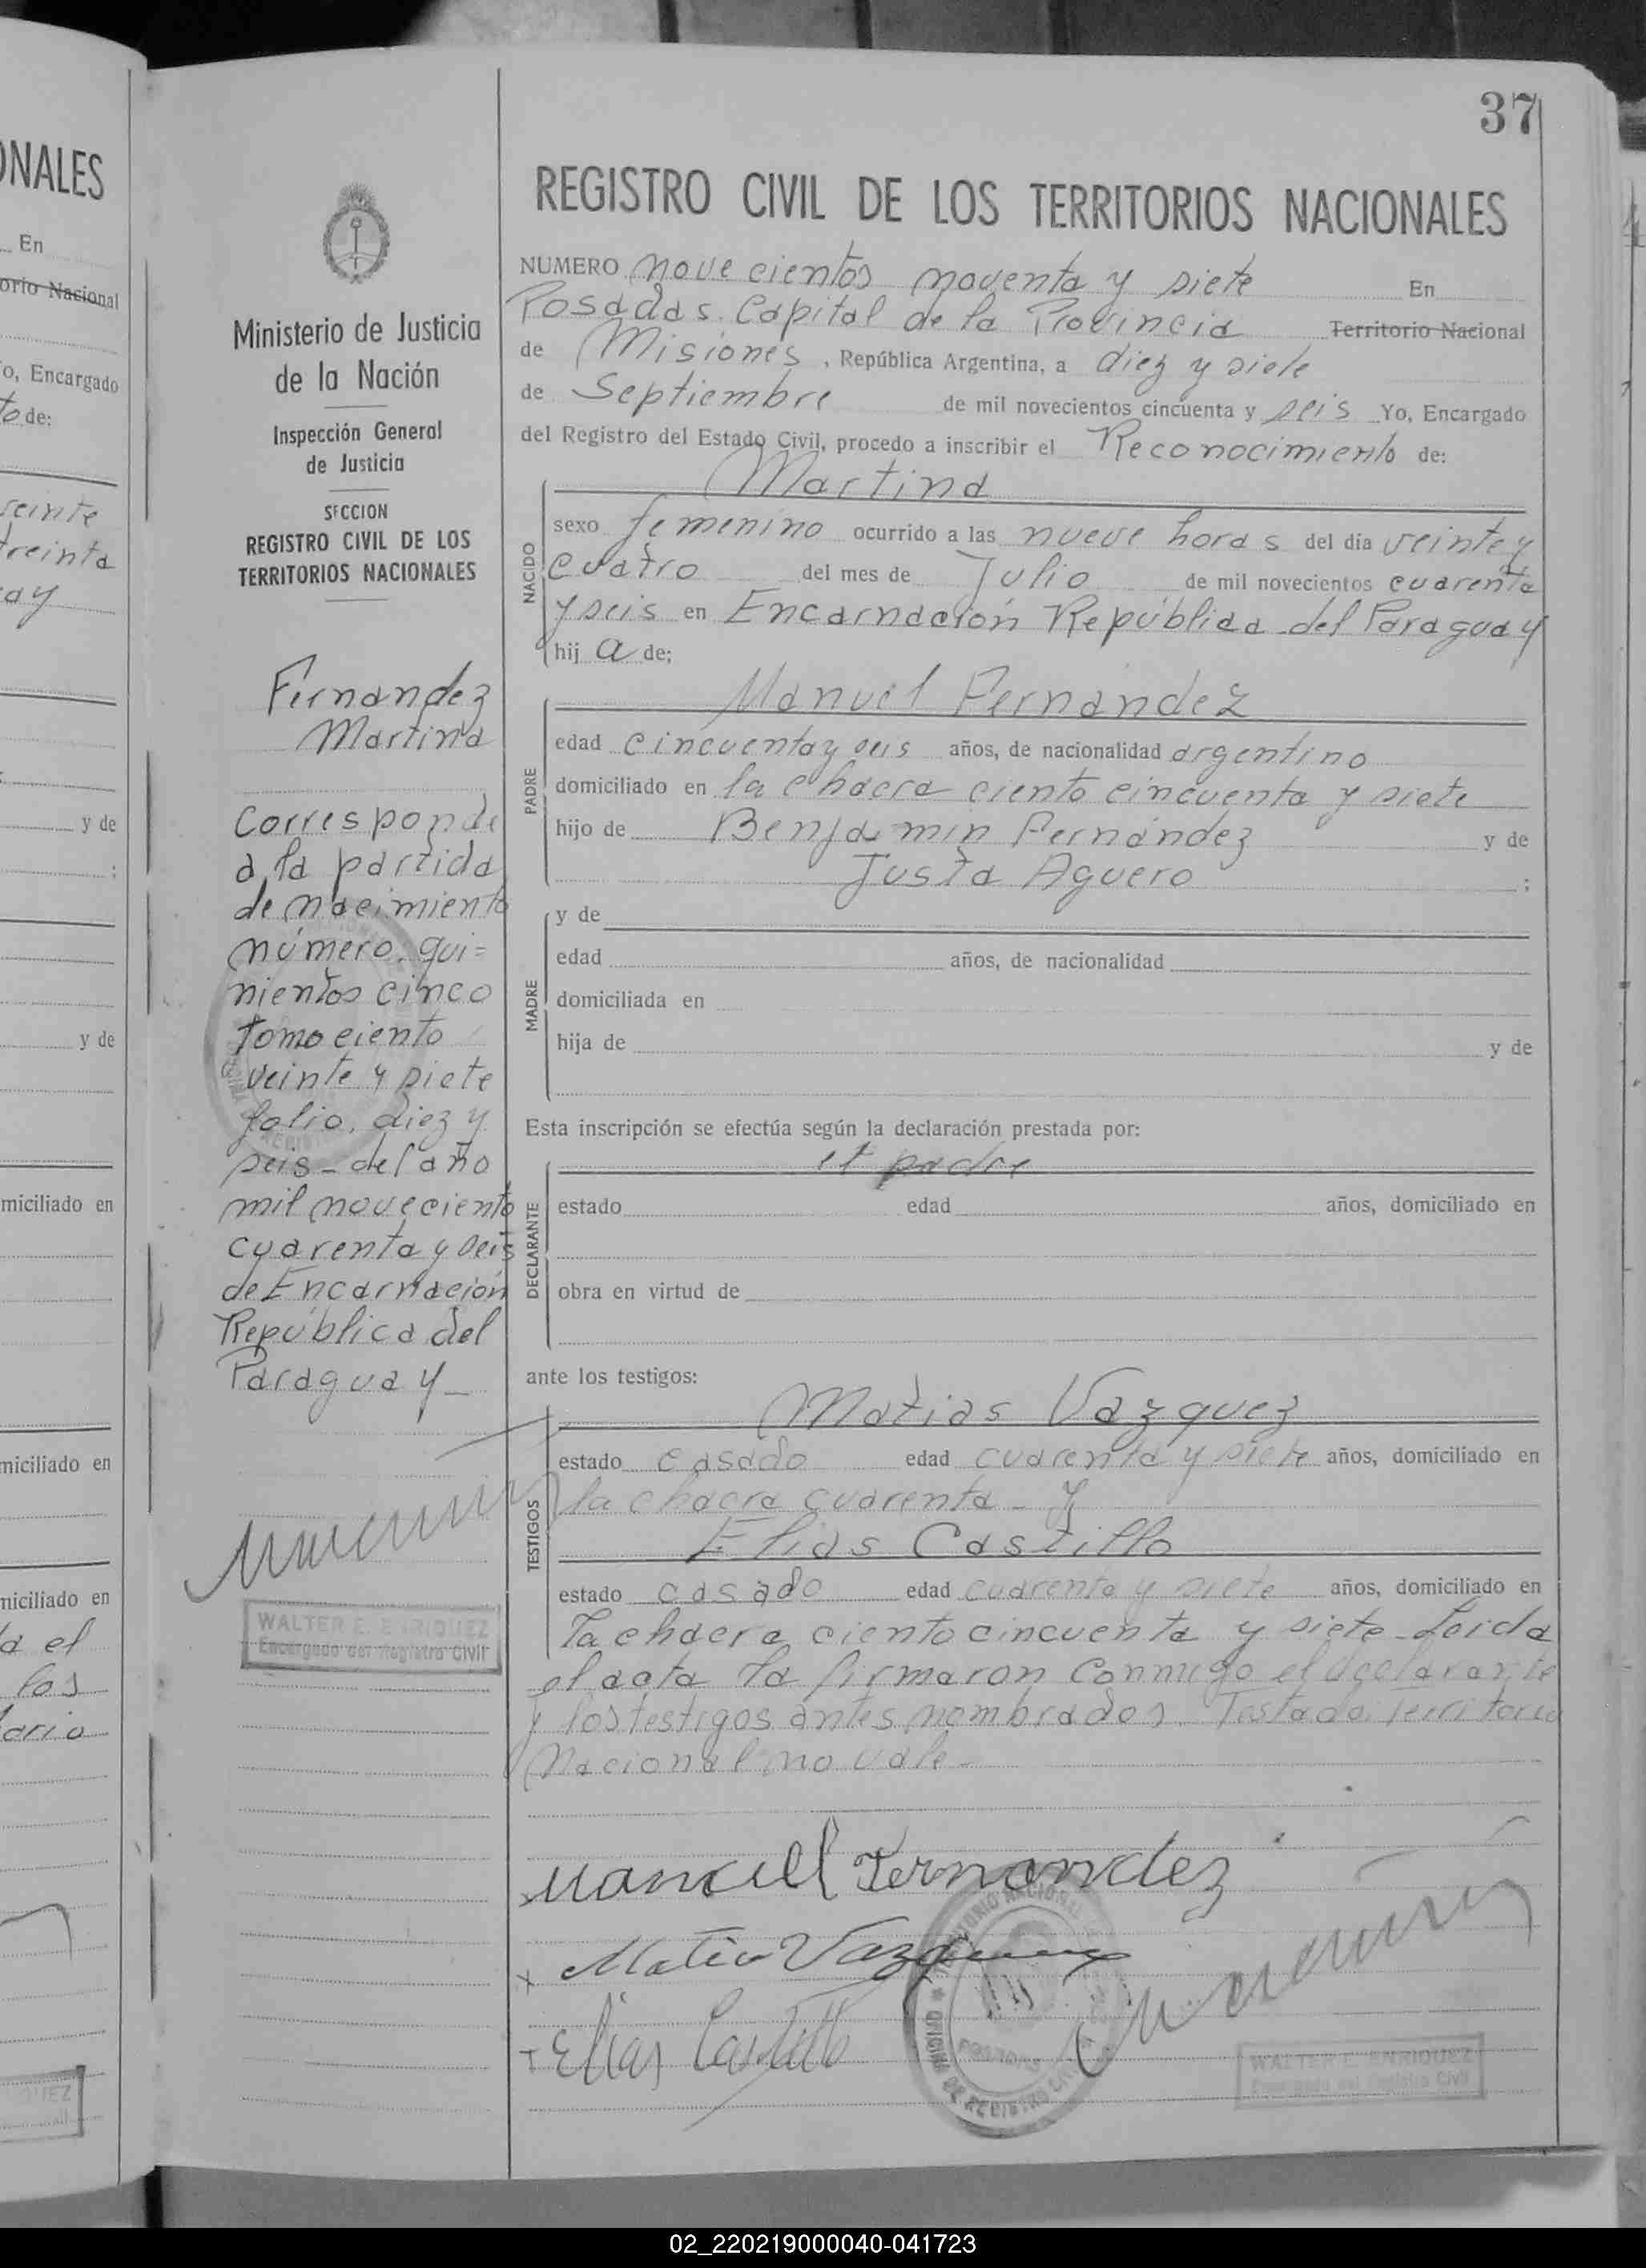 37
REGISTRO CIVIL DE LOS TERRITORIOS NACIONALES
NUMERO nove cientos noventa y siete En
Posadas. Capital de la Provincia Territorio Nacional
de Misiones, República Argentina, a diez y siete
de Septiembre de mil novecientos cincuenta y seis Yo, Encargado
del Registro del Estado Civil, procedo a inscribir el Reconocimiento de:
Martina
NACIDO
sexo femenino ocurrido a las nueve horas del día veinte y
cuatro del mes de Julio de mil novecientos cuarenta
y seis en Encarnación República del Paraguay
hij a de;
PADRE
Manuel Fernandez
edad cincuenta y seis años, de nacionalidad argentino
domiciliado en la chacra ciento cincuenta y siete
hijo de Benjamin Fernández y de
Justa Aguero ;
MADRE
y de
edad años, de nacionalidad
domiciliada en
hija de y de
Esta inscripción se efectúa según la declaración prestada por:
el padre
DECLARANTE
estado edad años, domiciliado en
obra en virtud de
ante los testigos:
TESTIGOS
Matias Vazquez
estado casado edad cuarenta y siete años, domiciliado en
la chacra cuarenta - y
Elias Castillo
estado casado edad cuarenta y siete años, domiciliado en
la chacra ciento cincuenta y siete. Leida
el acta la firmaron conmigo el declarante
y los testigos antes nombrados. Testado: Territorio
Nacional no vale.
Manuell Fernandez
x Matia Vazquez
+ Elias Castillo
OFICINA DE REGISTRO CIVIL
POSADAS
WALTER E. ENRIQUEZ
Encargado del Registro Civil
Ministerio de Justicia
de la Nación
Inspección General
de Justicia
SECCION
REGISTRO CIVIL DE LOS
TERRITORIOS NACIONALES
Fernandez
Martina
Corresponde
a la partida
de nacimiento
número. qui=
nientos cinco
tomo ciento
veinte y siete
folio. diez y
seis - del año
mil noveciento
cuarenta y seis
de Encarnación
República del
Paraguay -
WALTER E. ENRIQUEZ
Encargado del Registro Civil
ONALES
En
orio Nacional
o, Encargado
to de:
veinte
treinta
ay
y de
;
y de
miciliado en
miciliado en
miciliado en
a el
los
tario
QUEZ
02_220219000040-041723